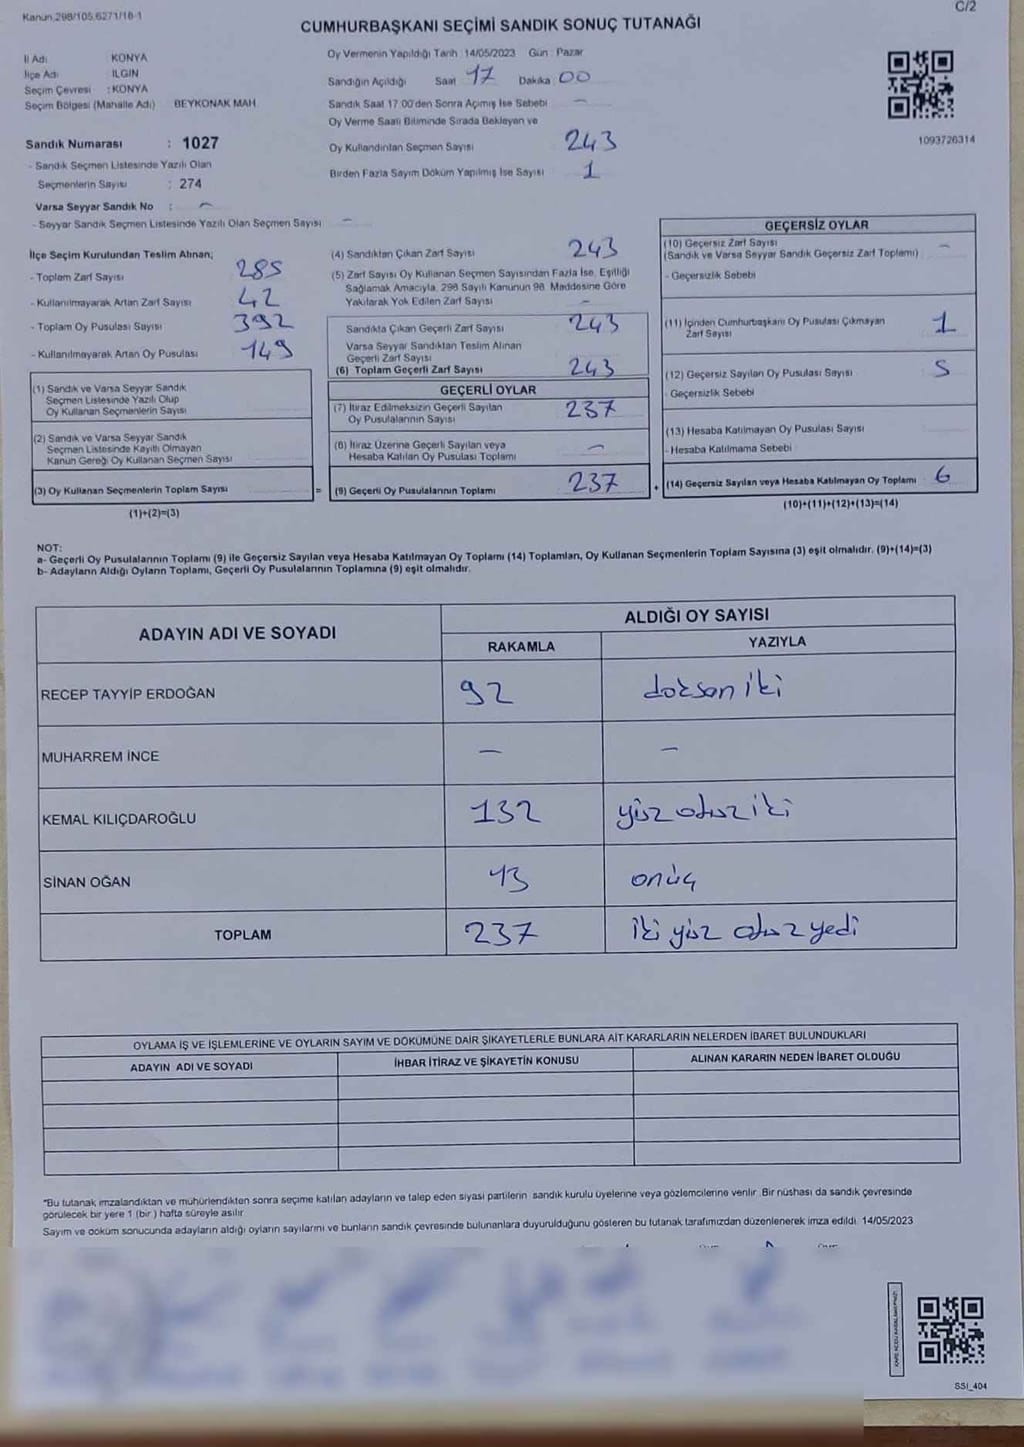 Kanun.298/105,6271/16-1
C/2
CUMHURBAŞKANI SEÇİMİ SANDIK SONUÇ TUTANAĞI
İl Adı KONYA
İlçe Adı ILGIN
Seçim Çevresi : KONYA
Seçim Bölgesi (Mahalle Adı) BEYKONAK MAH.
Sandık Numarası : 1027
- Sandık Seçmen Listesinde Yazılı Olan
Seçmenlerin Sayısı : 274
Varsa Seyyar Sandık No : -
- Seyyar Sandık Seçmen Listesinde Yazılı Olan Seçmen Sayısı -
Oy Vermenin Yapıldığı Tarih :14/05/2023 Gün : Pazar
Sandığın Açıldığı Saat 17 Dakika 00
Sandık Saat 17:00'den Sonra Açımış İse Sebebi -
Oy Verme Saati Bitiminde Sırada Bekleyen ve
Oy Kullandırılan Seçmen Sayısı 243
Birden Fazla Sayım Döküm Yapılmış İse Sayısı 1
1093726314
İlçe Seçim Kurulundan Teslim Alınan;
- Toplam Zarf Sayısı 285
- Kullanılmayarak Artan Zarf Sayısı 42
- Toplam Oy Pusulası Sayısı 392
- Kullanılmayarak Artan Oy Pusulası 149
(1) Sandık ve Varsa Seyyar Sandık
Seçmen Listesinde Yazılı Olup
Oy Kullanan Seçmenlerin Sayısı
(2) Sandık ve Varsa Seyyar Sandık
Seçmen Listesinde Kayıtlı Olmayan
Kanun Gereği Oy Kullanan Seçmen Sayısı
(3) Oy Kullanan Seçmenlerin Toplam Sayısı
(1)+(2)=(3)
=
(4) Sandıktan Çıkan Zarf Sayısı 243
(5) Zarf Sayısı Oy Kullanan Seçmen Sayısından Fazla İse, Eşitliği
Sağlamak Amacıyla, 298 Sayılı Kanunun 98. Maddesine Göre
Yakılarak Yok Edilen Zarf Sayısı -
Sandıkta Çıkan Geçerli Zarf Sayısı 243
Varsa Seyyar Sandıktan Teslim Alınan
Geçerli Zarf Sayısı
(6) Toplam Geçerli Zarf Sayısı 243
GEÇERLİ OYLAR
(7) İtiraz Edilmeksizin Geçerli Sayılan
Oy Pusulalarının Sayısı 237
(8) İtiraz Üzerine Geçerli Sayılan veya
Hesaba Katılan Oy Pusulası Toplamı -
(9) Geçerli Oy Pusulalarının Toplamı 237
+
GEÇERSİZ OYLAR
(10) Geçersiz Zarf Sayısı
(Sandık ve Varsa Seyyar Sandık Geçersiz Zarf Toplamı) -
- Geçersizlik Sebebi
(11) İçinden Cumhurbaşkanı Oy Pusulası Çıkmayan
Zarf Sayısı 1
(12) Geçersiz Sayılan Oy Pusulası Sayısı 5
- Geçersizlik Sebebi
(13) Hesaba Katılmayan Oy Pusulası Sayısı
- Hesaba Katılmama Sebebi
(14) Geçersiz Sayılan veya Hesaba Katılmayan Oy Toplamı 6
(10)+(11)+(12)+(13)=(14)
NOT:
a- Geçerli Oy Pusulalarının Toplamı (9) ile Geçersiz Sayılan veya Hesaba Katılmayan Oy Toplamı (14) Toplamları, Oy Kullanan Seçmenlerin Toplam Sayısına (3) eşit olmalıdır. (9)+(14)=(3)
b- Adayların Aldığı Oyların Toplamı, Geçerli Oy Pusulalarının Toplamına (9) eşit olmalıdır.
ADAYIN ADI VE SOYADI ALDIĞI OY SAYISI
RAKAMLA YAZIYLA
RECEP TAYYİP ERDOĞAN 92 doksan iki
MUHARREM İNCE - -
KEMAL KILIÇDAROĞLU 132 yüz otuz iki
SİNAN OĞAN 13 onüç
TOPLAM 237 iki yüz otuz yedi
OYLAMA İŞ VE İŞLEMLERİNE VE OYLARIN SAYIM VE DÖKÜMÜNE DAİR ŞİKAYETLERLE BUNLARA AİT KARARLARIN NELERDEN İBARET BULUNDUKLARI
ADAYIN ADI VE SOYADI İHBAR İTİRAZ VE ŞİKAYETİN KONUSU ALINAN KARARIN NEDEN İBARET OLDUĞU
*Bu tutanak imzalandıktan ve mühürlendikten sonra seçime katılan adayların ve talep eden siyasi partilerin sandık kurulu üyelerine veya gözlemcilerine verilir. Bir nüshası da sandık çevresinde
görülecek bir yere 1 (bir) hafta süreyle asılır.
Sayım ve döküm sonucunda adayların aldığı oyların sayılarını ve bunların sandık çevresinde bulunanlara duyurulduğunu gösteren bu tutanak tarafımızdan düzenlenerek imza edildi. 14/05/2023
SSI_404